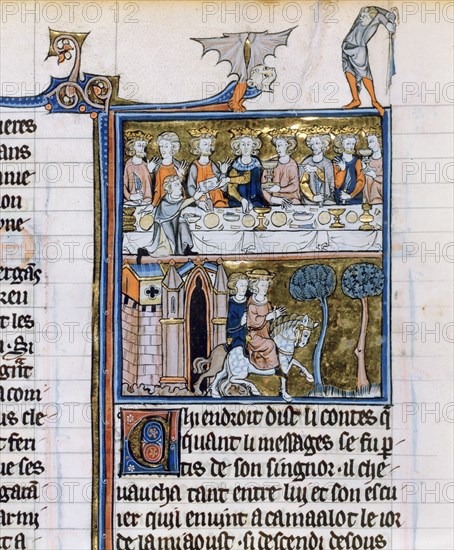 ieres
ans
nuie
non
yne
ergās
reu
t les
Si
gnt
a com
us cle
t feri
ue ses
gatā
armi
t a
Chi endroit dist li contes q̄
quant li messages se fu p̄
tis de son singnor. il che
uaucha tant entre lui et son escu
ier quil en uint a camaalot le ior
de la mi aoust. si descendi desous